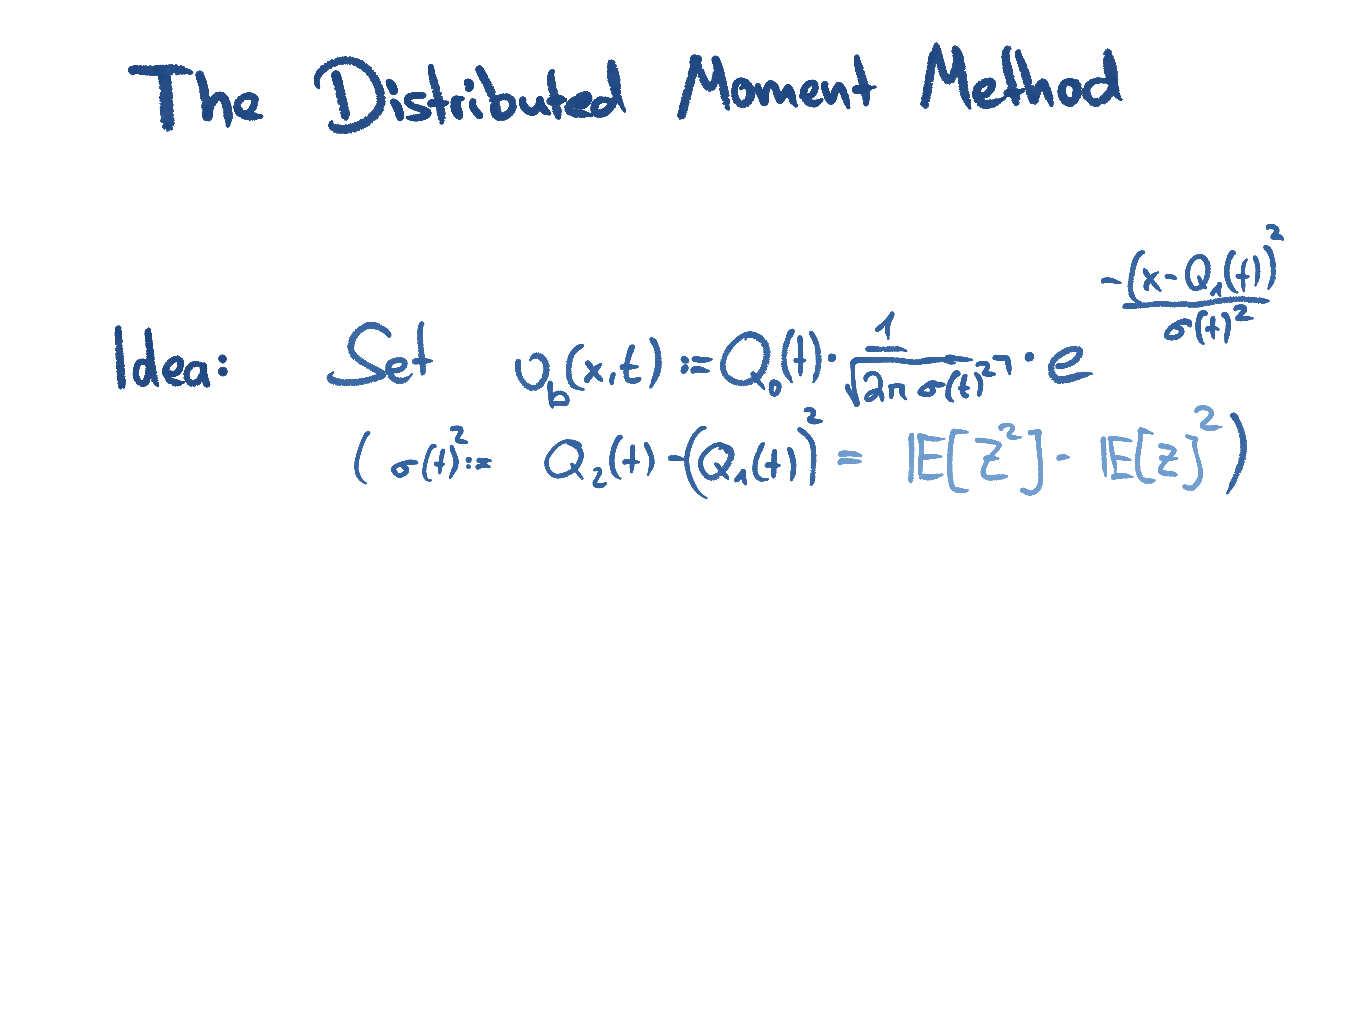 The Distributed Moment Method
Idea: Set υ_b(x,t) := Q₀(t) · 1/√(2π σ(t)²) · e^(-(x-Q₁(t))²/σ(t)²)
( σ(t)² := Q₂(t) - (Q₁(t))² = 𝔼[Z²] - 𝔼[Z]² )